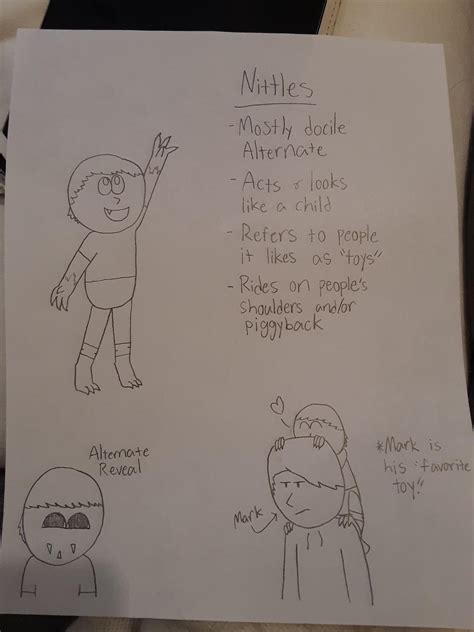 Nittles
- Mostly docile
Alternate
- Acts & looks
like a child
- Refers to people
it likes as "toys"
- Rides on people's
shoulders and/or
piggyback
Alternate
Reveal
Mark
*Mark is
his "favorite
toy."